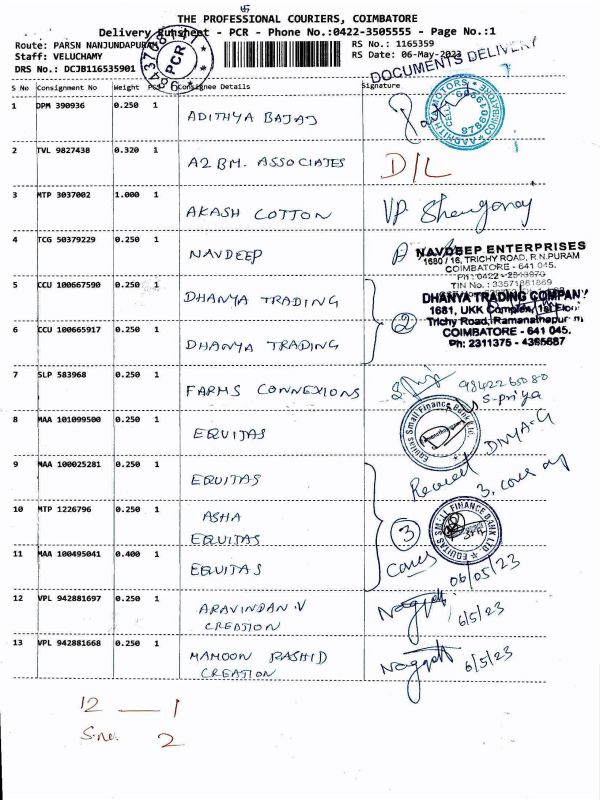 THE PROFESSIONAL COURIERS, COIMBATORE
Delivery Runsheet - PCR - Phone No.:0422-3505555 - Page No.:1
Route: PARSN NANJUNDAPURAM
RS No.: 1165359
Staff: VELUCHAMY
RS Date: 06-May-2023
DRS No.: DCJB116535901
PCR
DOCUMENTS DELIVERY
S No Consignment No Weight PCS Consignee Details Signature
1 DPM 390936 0.250 1 ADITHYA BAJAJ
AADHITHYA MOTORS COIMBATORE
2 TVL 9827438 0.320 1 A2 BM. ASSOCIATES D/L
3 MTP 3037002 1.000 1 AKASH COTTON VP
4 TCG 50379229 0.250 1 NAVDEEP
NAVDEEP ENTERPRISES
1680 / 16, TRICHY ROAD, R.N.PURAM
COIMBATORE - 641 045.
5 CCU 100667590 0.250 1 DHANYA TRADING
DHANYA TRADING COMPANY
1681, UKK Complex, 1st Floor
Trichy Road, Ramanathapuram
COIMBATORE - 641 045.
Ph: 2311375 - 4385687
2
6 CCU 100665917 0.250 1 DHANYA TRADING
7 SLP 583968 0.250 1 FARMS CONNEXIONS 9842265080
S-priya
8 MAA 101099500 0.250 1 EQUITAS
Equitas Small Finance Bank Ltd.
DIVYA-G
9 MAA 100025281 0.250 1 EQUITAS Received 3. cover
10 MTP 1226796 0.250 1 ASHA
EQUITAS
3
EQUITAS SMALL FINANCE BANK LTD
11 MAA 100495041 0.400 1 EQUITAS 06/05/23
12 VPL 942881697 0.250 1 ARAVINDAN.V 6/5/23
CREATION
13 VPL 942881668 0.250 1 MAMOON RASHID 6/5/23
CREATION
12 — 1
S.no. 2